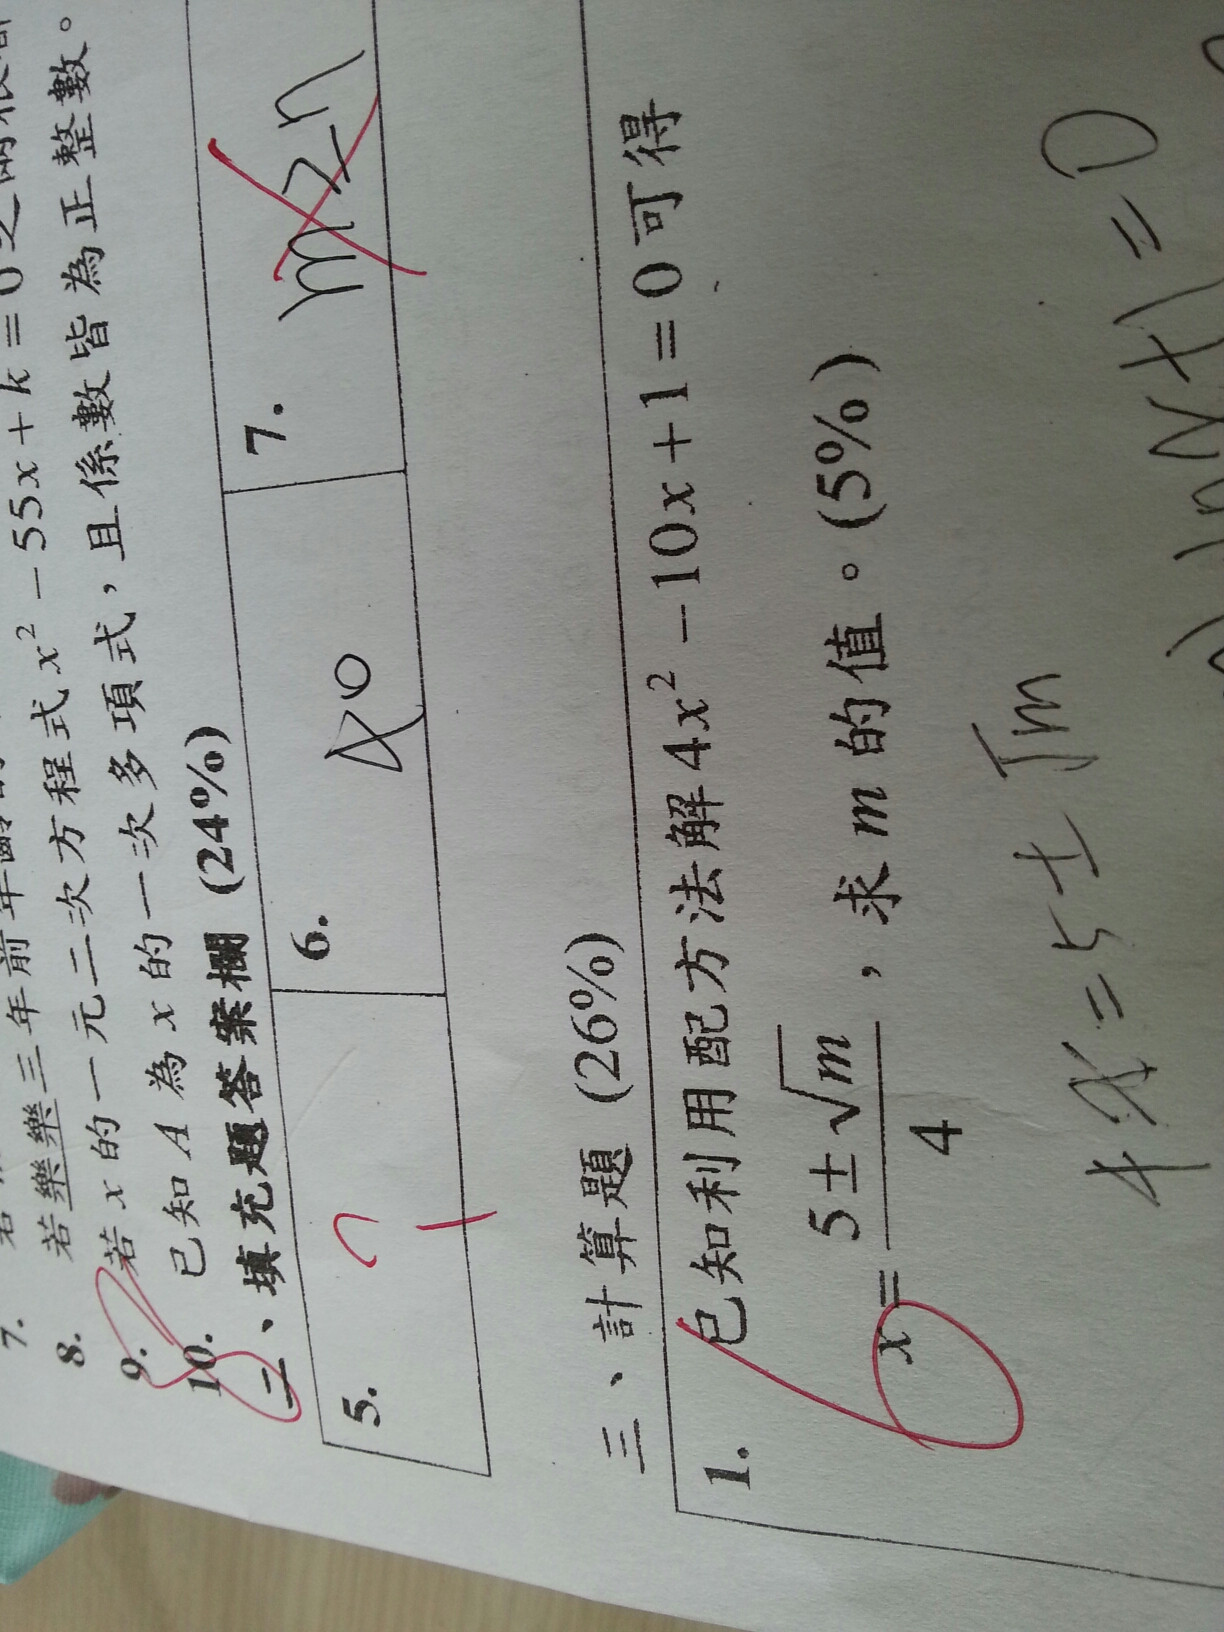 7.
8. 若樂樂三年前年齡
9. 若 x 的一元二次方程式 x² − 55x + k = 0 之兩根都
10. 已知 A 為 x 的一次多項式，且係數皆為正整數。
二、填充題答案欄 (24%)
5.
6. 40
7. m≥n
三、計算題 (26%)
1. 已知利用配方法解 4x² −10x +1 = 0 可得
x = (5 ± √m) / 4 ，求 m 的值。(5%)
4x = 5 ± √m
10x+1=0